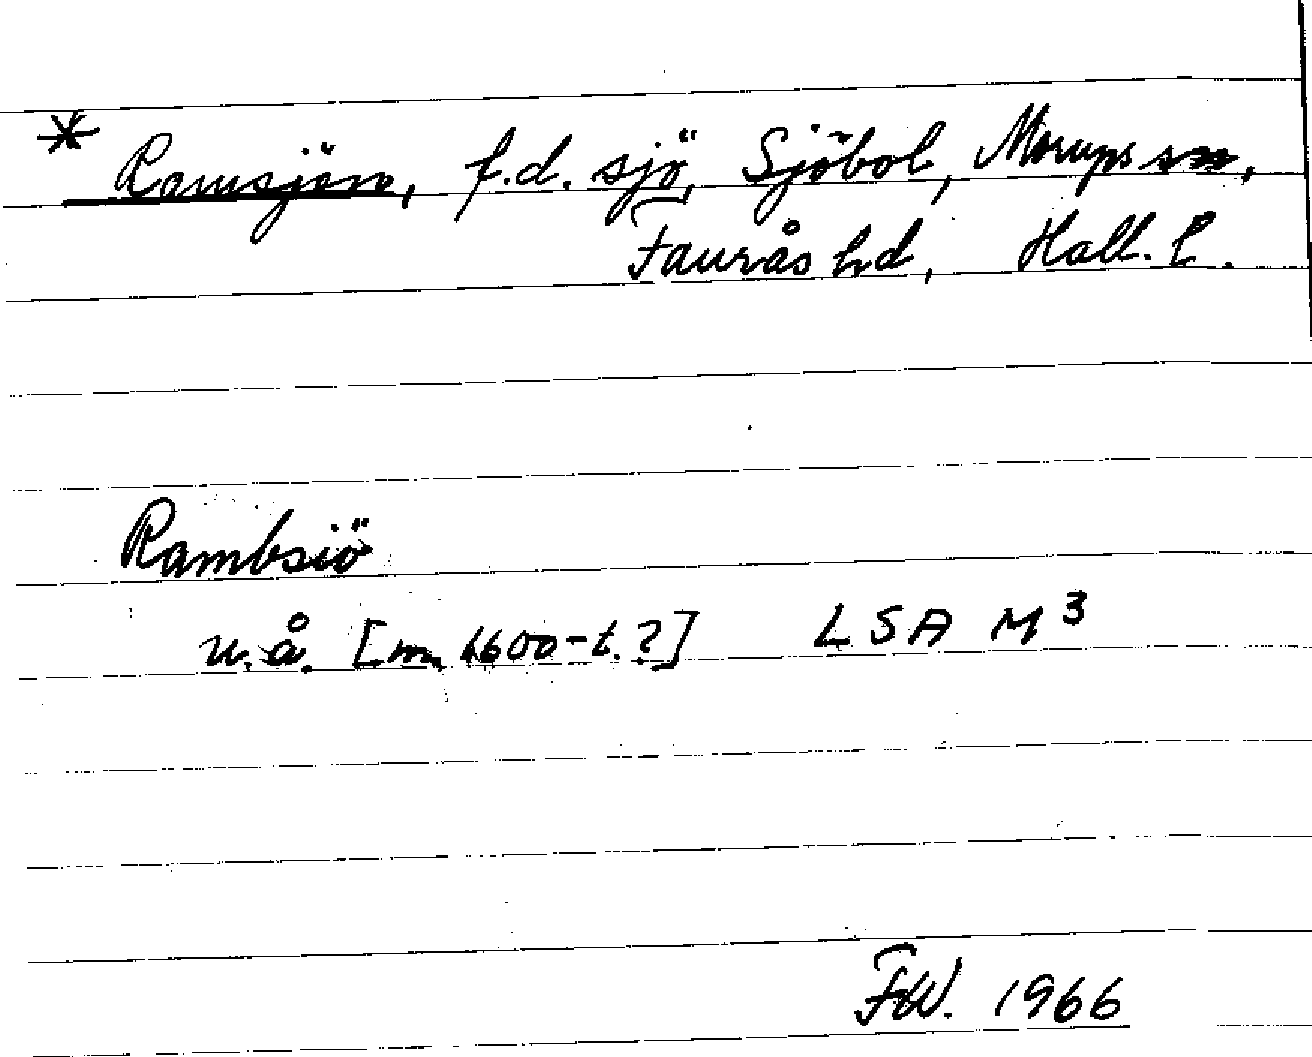 * Ramsjön, f.d. sjö, Sjöbol, Morups sn,
Faurås hd, Hall. l.
Rambsiö
u.å. [m. 1600-t.?] LSA M3
FW. 1966